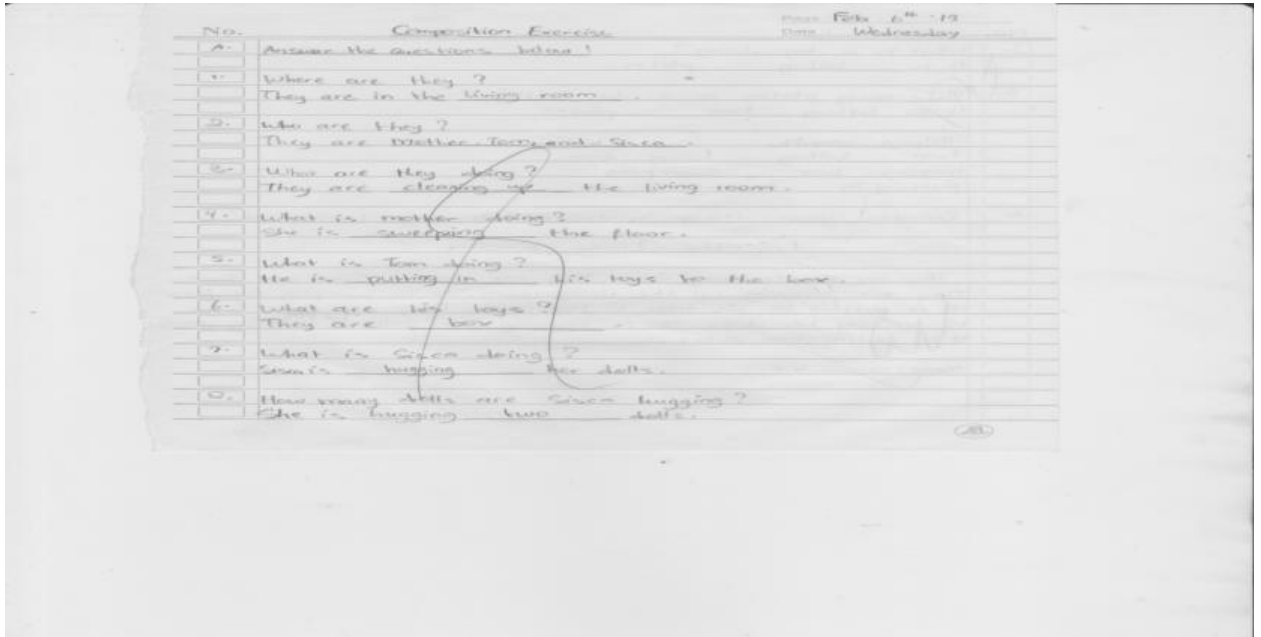 No. Composition Exercise Feb 6th '19
Date Wednesday
A. Answer the questions below!
1. Where are they?
They are in the living room.
2. Who are they?
They are mother, Tom, and Sisca.
3. What are they doing?
They are cleaning up the living room.
4. What is mother doing?
She is sweeping the floor.
5. What is Tom doing?
He is putting in his toys to the box.
6. What are his toys?
They are box.
7. What is Sisca doing?
Sisca is hugging her dolls.
8. How many dolls are Sisca hugging?
She is hugging two dolls.